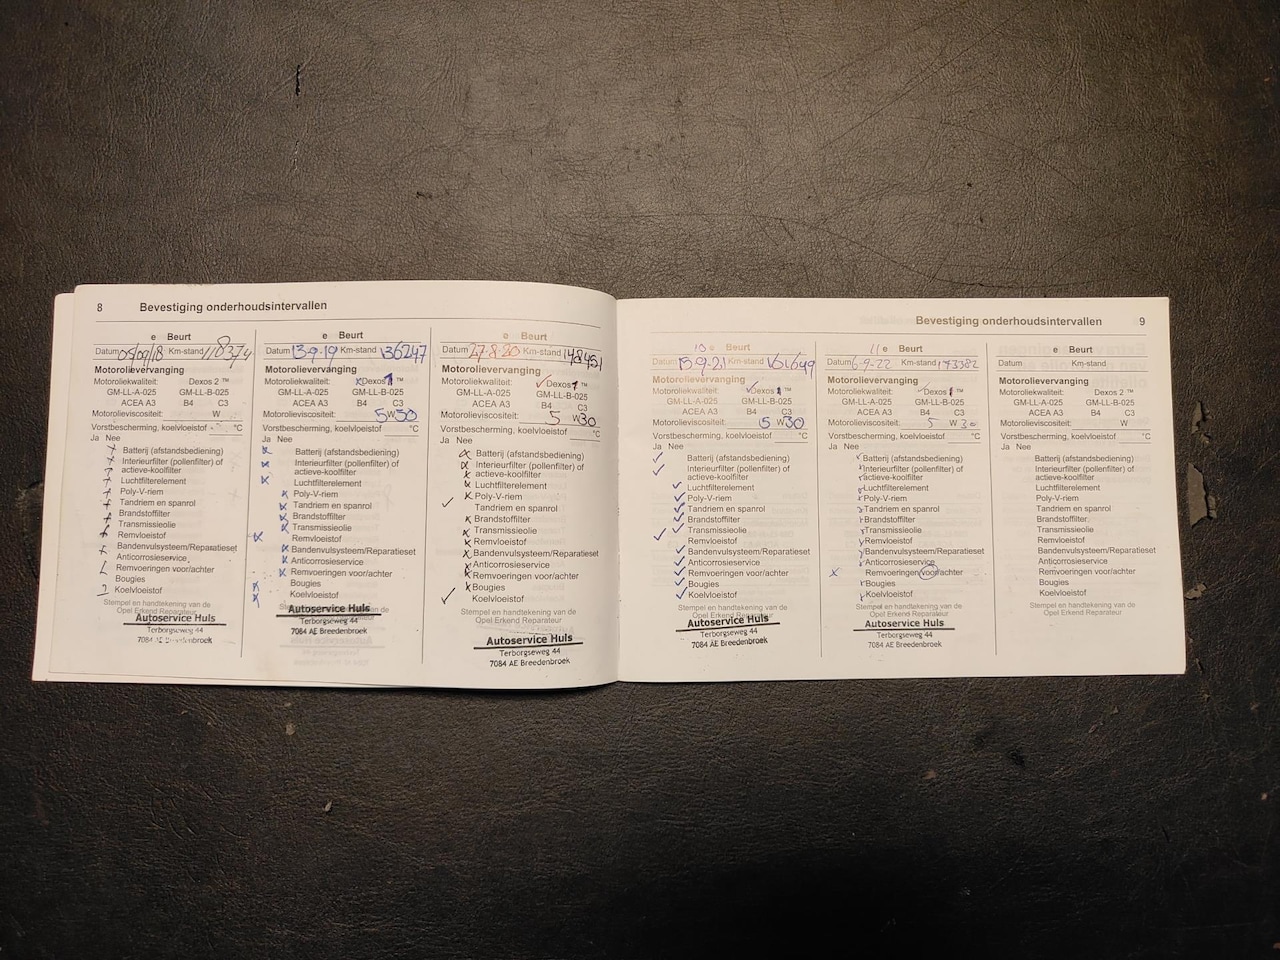 8 Bevestiging onderhoudsintervallen
e Beurt
Datum 05/09/18 Km-stand 118374
Motorolievervanging
Motoroliekwaliteit: Dexos 2 ™
GM-LL-A-025 GM-LL-B-025
ACEA A3 B4 C3
Motorolieviscositeit: W
Vorstbescherming, koelvloeistof °C
Ja Nee
Batterij (afstandsbediening)
Interieurfilter (pollenfilter) of
actieve-koolfilter
Luchtfilterelement
Poly-V-riem
Tandriem en spanrol
Brandstoffilter
Transmissieolie
Remvloeistof
Bandenvulsysteem/Reparatieset
Anticorrosieservice
Remvoeringen voor/achter
Bougies
Koelvloeistof
Stempel en handtekening van de
Opel Erkend Reparateur
Autoservice Huls
Terborgseweg 44
7084 AE Breedenbroek
e Beurt
Datum 13-9-19 Km-stand 136247
Motorolievervanging
Motoroliekwaliteit: Dexos 1 ™
GM-LL-A-025 GM-LL-B-025
ACEA A3 B4 C3
Motorolieviscositeit: 5 W 30
Vorstbescherming, koelvloeistof °C
Ja Nee
Batterij (afstandsbediening)
Interieurfilter (pollenfilter) of
actieve-koolfilter
Luchtfilterelement
Poly-V-riem
Tandriem en spanrol
Brandstoffilter
Transmissieolie
Remvloeistof
Bandenvulsysteem/Reparatieset
Anticorrosieservice
Remvoeringen voor/achter
Bougies
Koelvloeistof
Autoservice Huls
Terborgseweg 44
7084 AE Breedenbroek
e Beurt
Datum 27-8-20 Km-stand 148451
Motorolievervanging
Motoroliekwaliteit: Dexos 1 ™
GM-LL-A-025 GM-LL-B-025
ACEA A3 B4 C3
Motorolieviscositeit: 5 W 30
Vorstbescherming, koelvloeistof °C
Ja Nee
Batterij (afstandsbediening)
Interieurfilter (pollenfilter) of
actieve-koolfilter
Luchtfilterelement
Poly-V-riem
Tandriem en spanrol
Brandstoffilter
Transmissieolie
Remvloeistof
Bandenvulsysteem/Reparatieset
Anticorrosieservice
Remvoeringen voor/achter
Bougies
Koelvloeistof
Stempel en handtekening van de
Opel Erkend Reparateur
Autoservice Huls
Terborgseweg 44
7084 AE Breedenbroek
Bevestiging onderhoudsintervallen 9
10 e Beurt
Datum 15-9-21 Km-stand 161649
Motorolievervanging
Motoroliekwaliteit: Dexos 1 ™
GM-LL-A-025 GM-LL-B-025
ACEA A3 B4 C3
Motorolieviscositeit: 5 W 30
Vorstbescherming, koelvloeistof °C
Ja Nee
Batterij (afstandsbediening)
Interieurfilter (pollenfilter) of
actieve-koolfilter
Luchtfilterelement
Poly-V-riem
Tandriem en spanrol
Brandstoffilter
Transmissieolie
Remvloeistof
Bandenvulsysteem/Reparatieset
Anticorrosieservice
Remvoeringen voor/achter
Bougies
Koelvloeistof
Stempel en handtekening van de
Opel Erkend Reparateur
Autoservice Huls
Terborgseweg 44
7084 AE Breedenbroek
11 e Beurt
Datum 6-9-22 Km-stand 173382
Motorolievervanging
Motoroliekwaliteit: Dexos 1 ™
GM-LL-A-025 GM-LL-B-025
ACEA A3 B4 C3
Motorolieviscositeit: 5 W 30
Vorstbescherming, koelvloeistof °C
Ja Nee
Batterij (afstandsbediening)
Interieurfilter (pollenfilter) of
actieve-koolfilter
Luchtfilterelement
Poly-V-riem
Tandriem en spanrol
Brandstoffilter
Transmissieolie
Remvloeistof
Bandenvulsysteem/Reparatieset
Anticorrosieservice
Remvoeringen voor/achter
Bougies
Koelvloeistof
Stempel en handtekening van de
Opel Erkend Reparateur
Autoservice Huls
Terborgseweg 44
7084 AE Breedenbroek
e Beurt
Datum Km-stand
Motorolievervanging
Motoroliekwaliteit: Dexos 2 ™
GM-LL-A-025 GM-LL-B-025
ACEA A3 B4 C3
Motorolieviscositeit: W
Vorstbescherming, koelvloeistof °C
Ja Nee
Batterij (afstandsbediening)
Interieurfilter (pollenfilter) of
actieve-koolfilter
Luchtfilterelement
Poly-V-riem
Tandriem en spanrol
Brandstoffilter
Transmissieolie
Remvloeistof
Bandenvulsysteem/Reparatieset
Anticorrosieservice
Remvoeringen voor/achter
Bougies
Koelvloeistof
Stempel en handtekening van de
Opel Erkend Reparateur